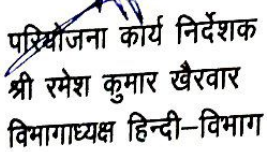 परियोजना कार्य निर्देशक
श्री रमेश कुमार खैरवार
विभागाध्यक्ष हिन्दी–विभाग